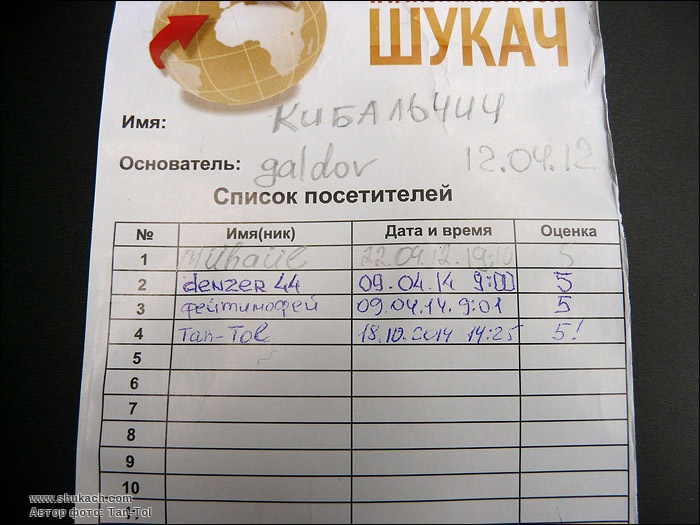 ШУКАЧ
Имя: КИБАЛЬЧИЧ
Основатель: galdov 12.04.12
Список посетителей
№ Имя(ник) Дата и время Оценка
1 22.04.12. 19:10 5
2 denzer 44 09.04.14 9:00 5
3 фейтимофей 09.04.14. 9:01 5
4 Tan-Tol 18.10.2014 14:25 5!
5
6
7
8
9
10
11
www.shukach.com
Автор фото: Tan-Tol